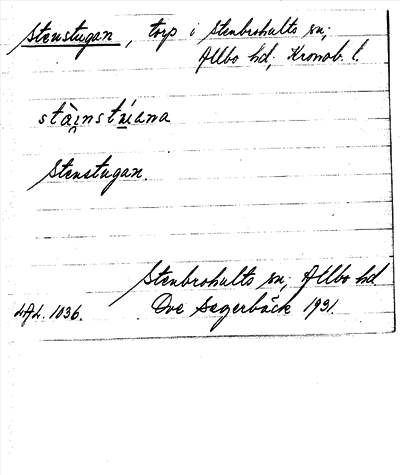 Stenstugan, torp i Stenbrohults sn;
Allbo hd; Kronob. l.
Stenstugan.
Stenbrohults sn; Allbo hd
Ove Segerbäck 1931.
1036.